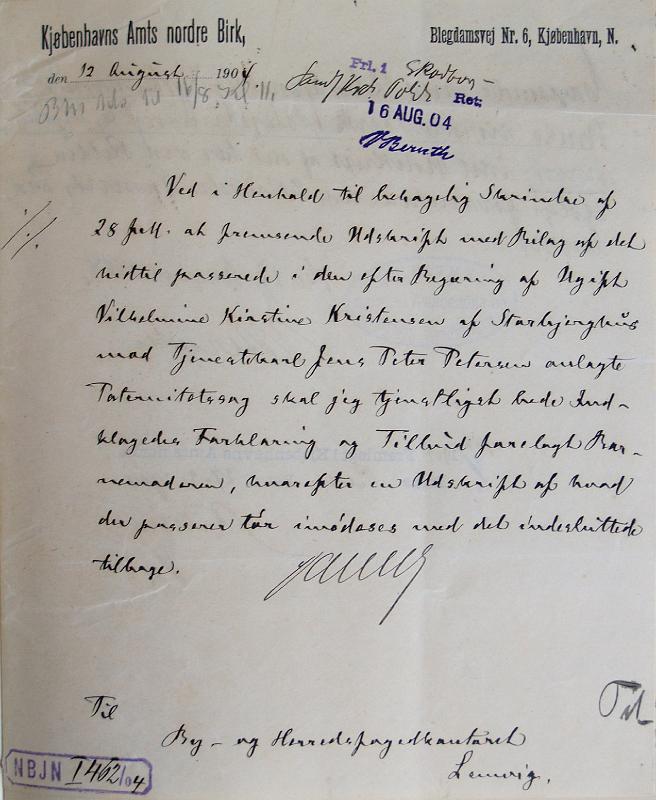 Kjøbenhavns Amts nordre Birk,
Blegdamsvej Nr. 6, Kjøbenhavn, N.
den 12 August 1904
Frl. 1 Skodborg-
Ret.
16 AUG. 04
Ved i Henhold til behagelig Skrivelse af
28 f.M. at fremsende Udskrift med Bilag af det
hidtil passerede i den efter Begæring af Ugift
Vilhelmine Kirstine Kristensen af Storbjerghus
mod Tjenestekarl Jens Peter Petersen anlagte
Paternitetssag skal jeg tjenstligst bede Ind-
klagedes Forklaring og Tilbud forelagt Bar-
nemoderen, hvorefter en Udskrift af hvad
der passerer tør imødeses med det indesluttede
tilbage.
Til
By- og Herredsfogedkontoret
Lemvig.
NBJN I 462/04